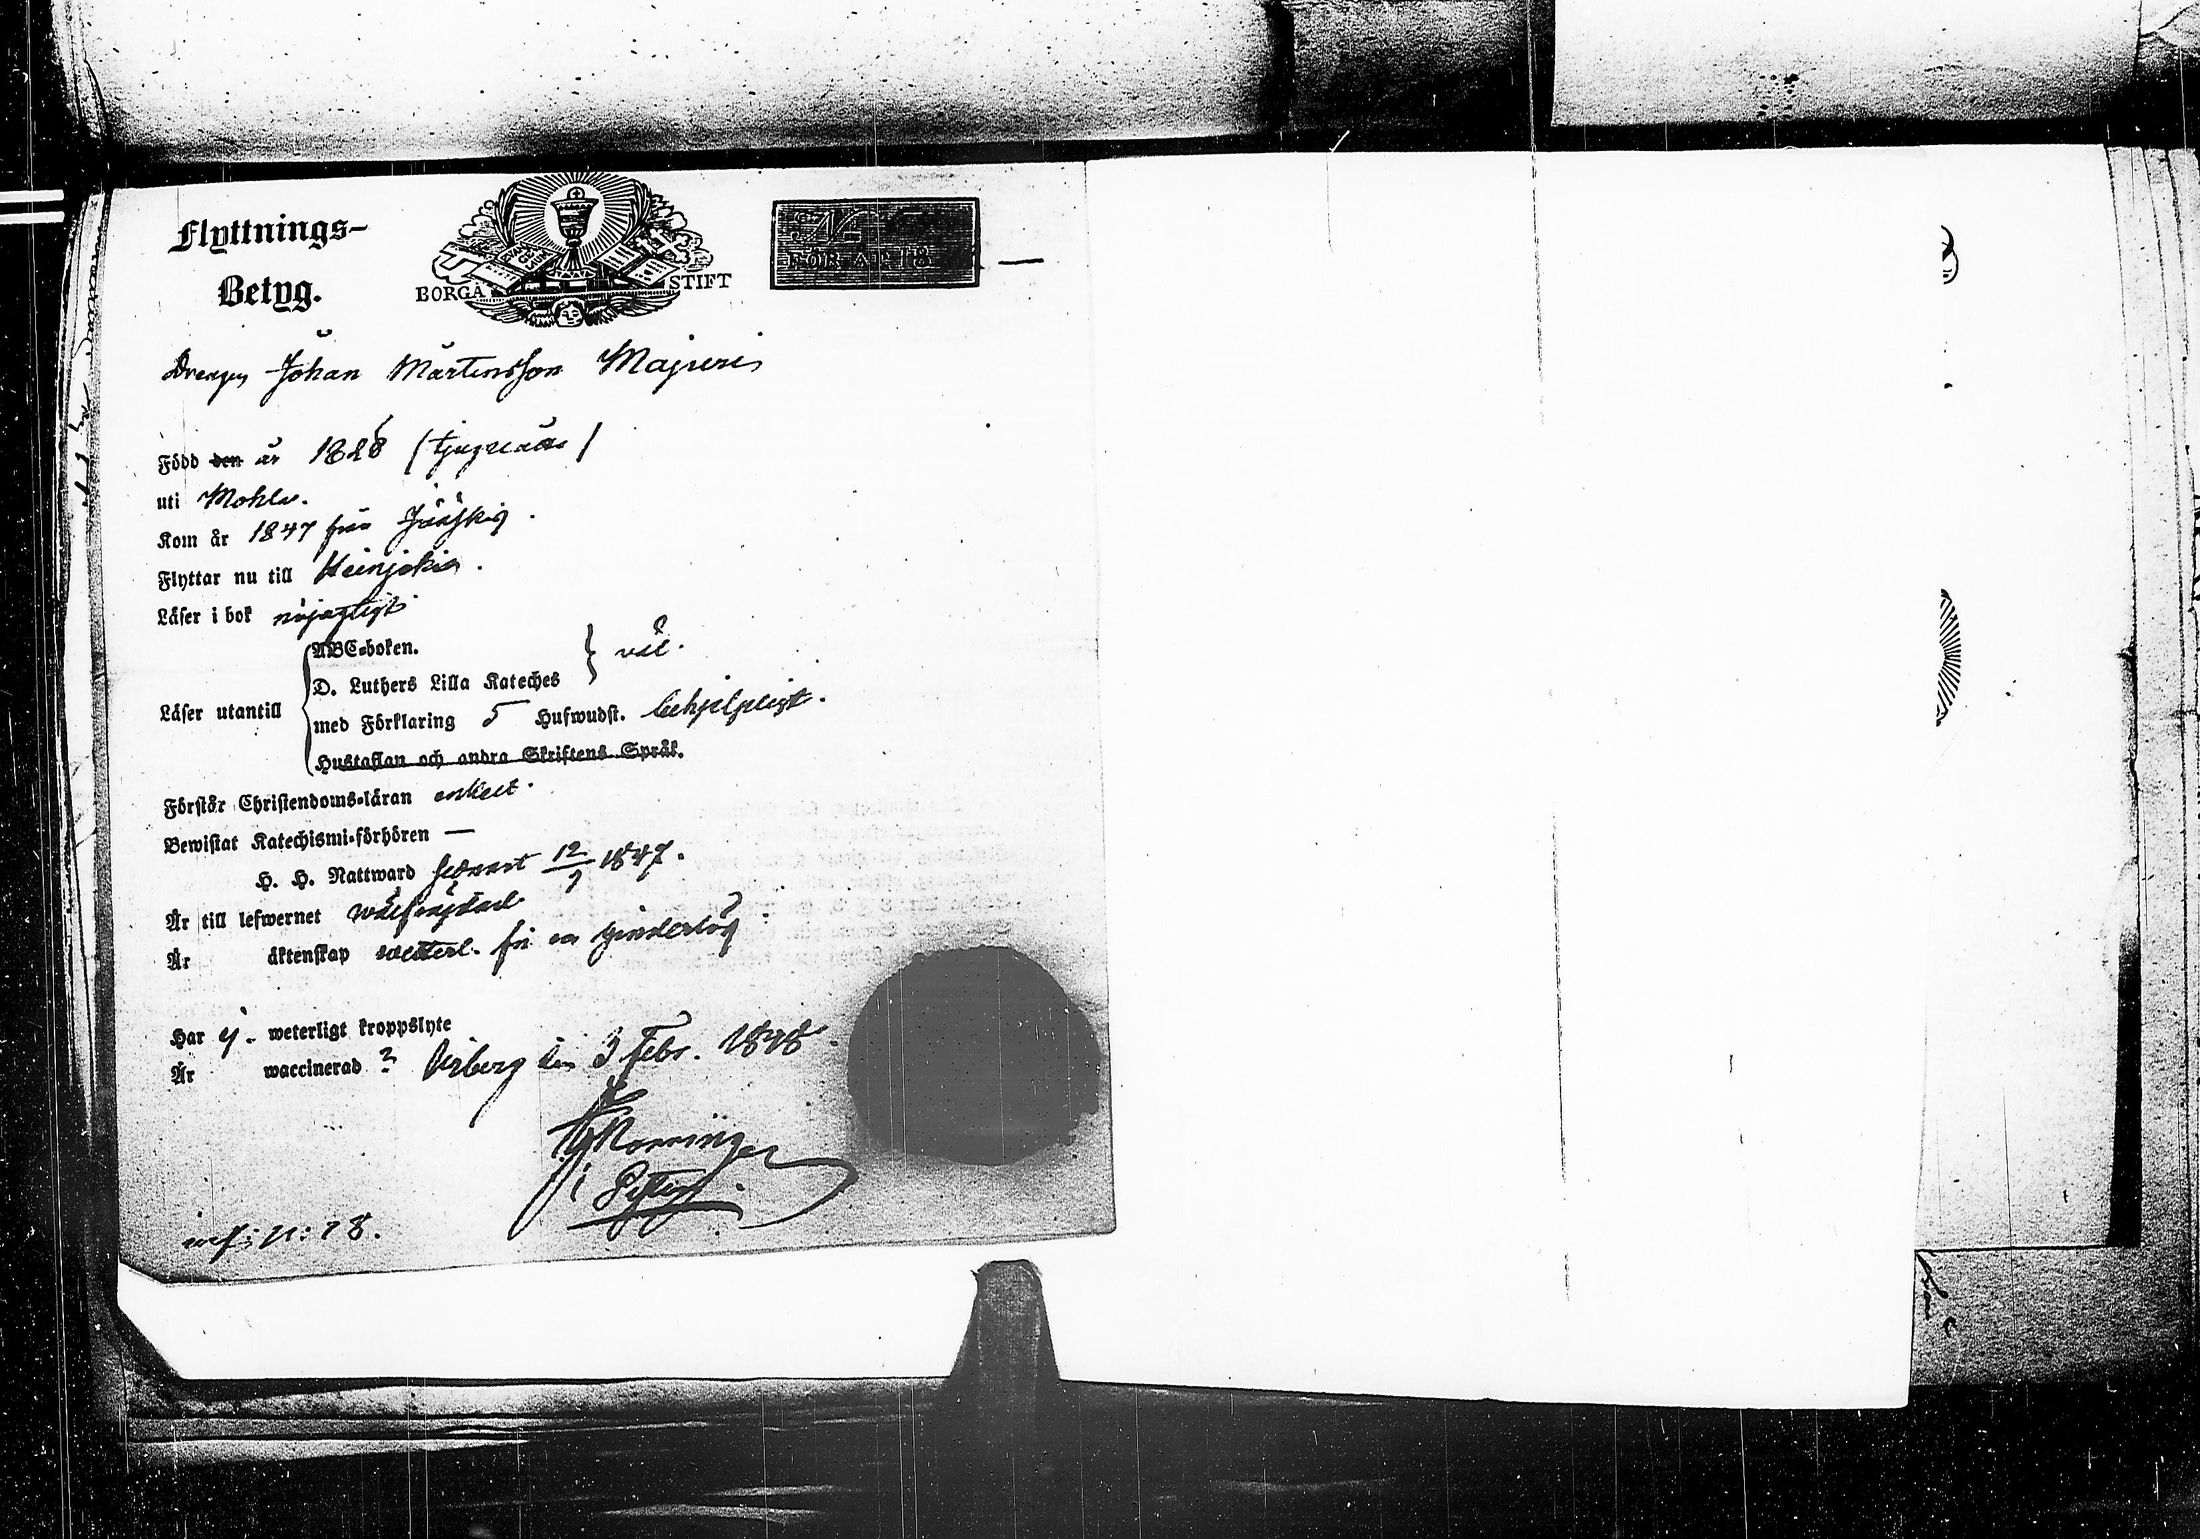 Flyttnings-
Betyg.
BORGÅ STIFT
N
FÖR ÅR 18 —
Drengen Johan Mårtensson Majuri
Född den år 1828 (tjuguåtta)
uti Mohla.
Kom år 1847 från Jääskis.
Flyttar nu till Heinjokia.
Läser i bok nöjagtigt
Läser utantill
ABC-boken.
D. Luthers Lilla Kateches
} väl.
med Förklaring 5 Hufwudst. behjelpligt.
Hustaflan och andra Skriftens Språk.
Förstår Christendoms-läran enkelt.
Bewistat Katechismi-förhören —
H. H. Nattward senast 12/9 1847.
Är till lefwernet wälfräjdad
Är äktenskap weterl. fri
Har ej weterligt kroppslyte
Är waccinerad ? Wiborg den 3 Febr. 1848.
inf: N: 18.